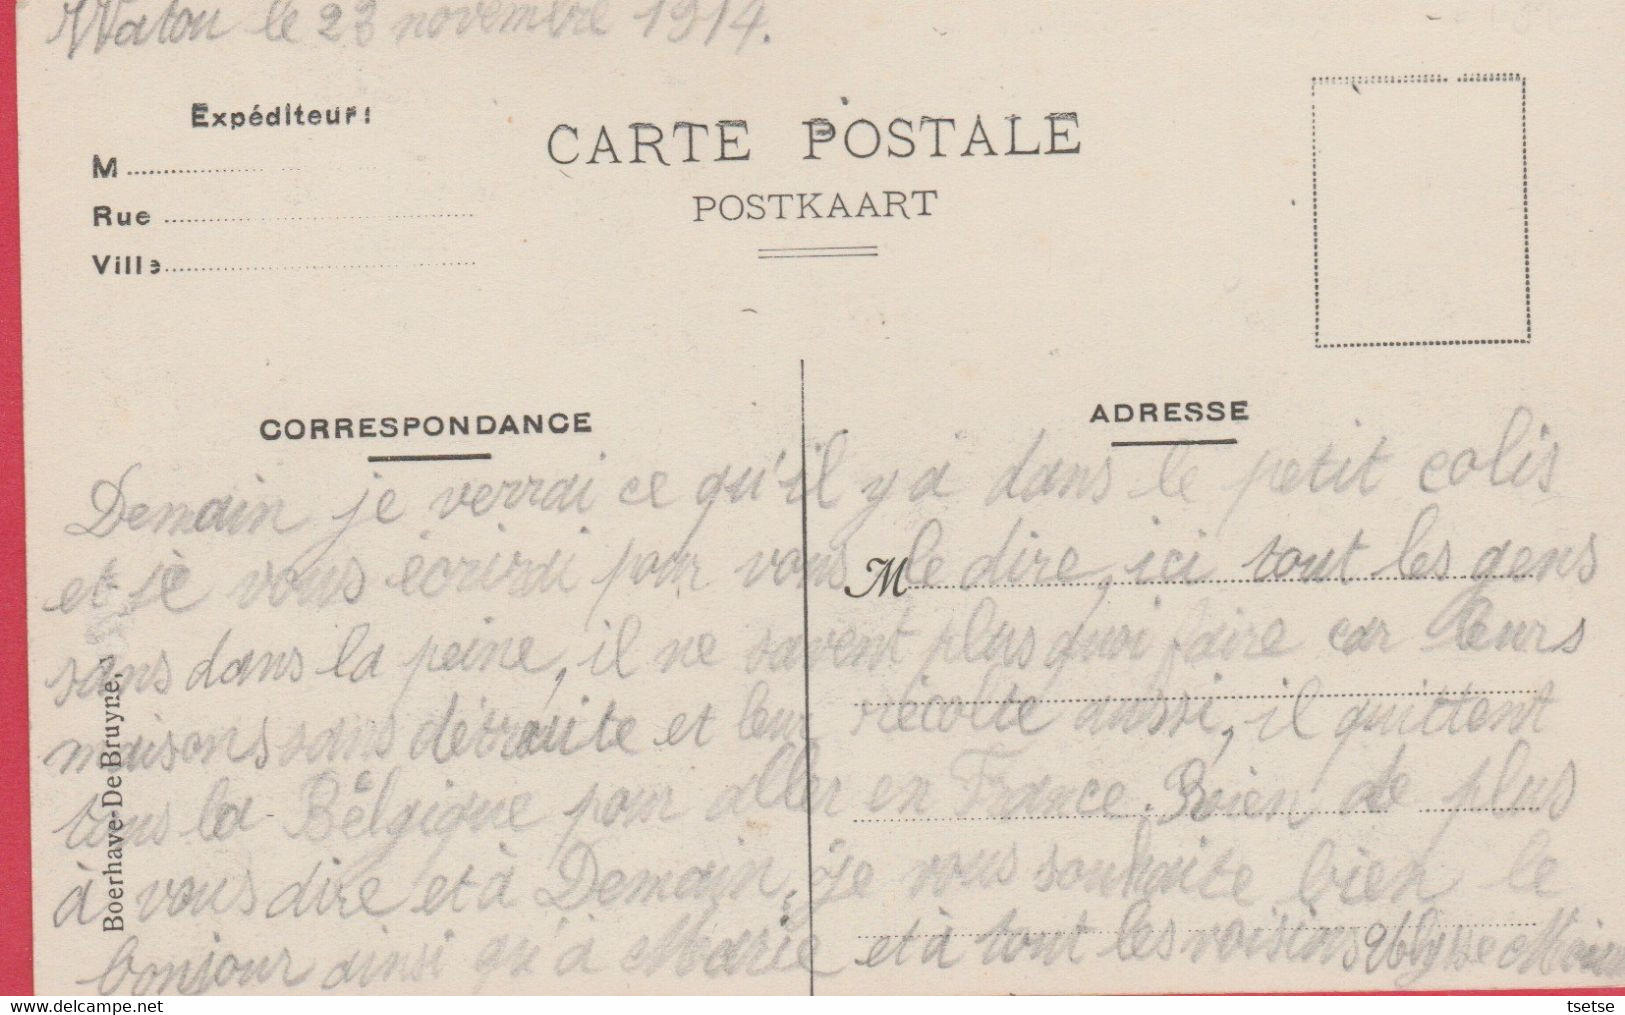 Watou le 23 novembre 1914.
Expéditeur:
CARTE POSTALE
M
POSTKAART
Rue
Ville
CORRESPONDANCE
ADRESSE
Demain je verrai ce qu'il y a dans le petit colis
et je vous écrirai pour vous le dire, ici tout les gens
M
sans dans la peine, il ne savent plus quoi faire car leurs
maisons sans détruite et leur récolte aussi, il quittent
tous la Bélgique pour aller en France. Rien de plus
à vous dire et à Demain. Je vous souhaite bien le
bonjour ainsi qu'à Marie et à tout les voisins
Boerhave-De Bruyne,
tsetse